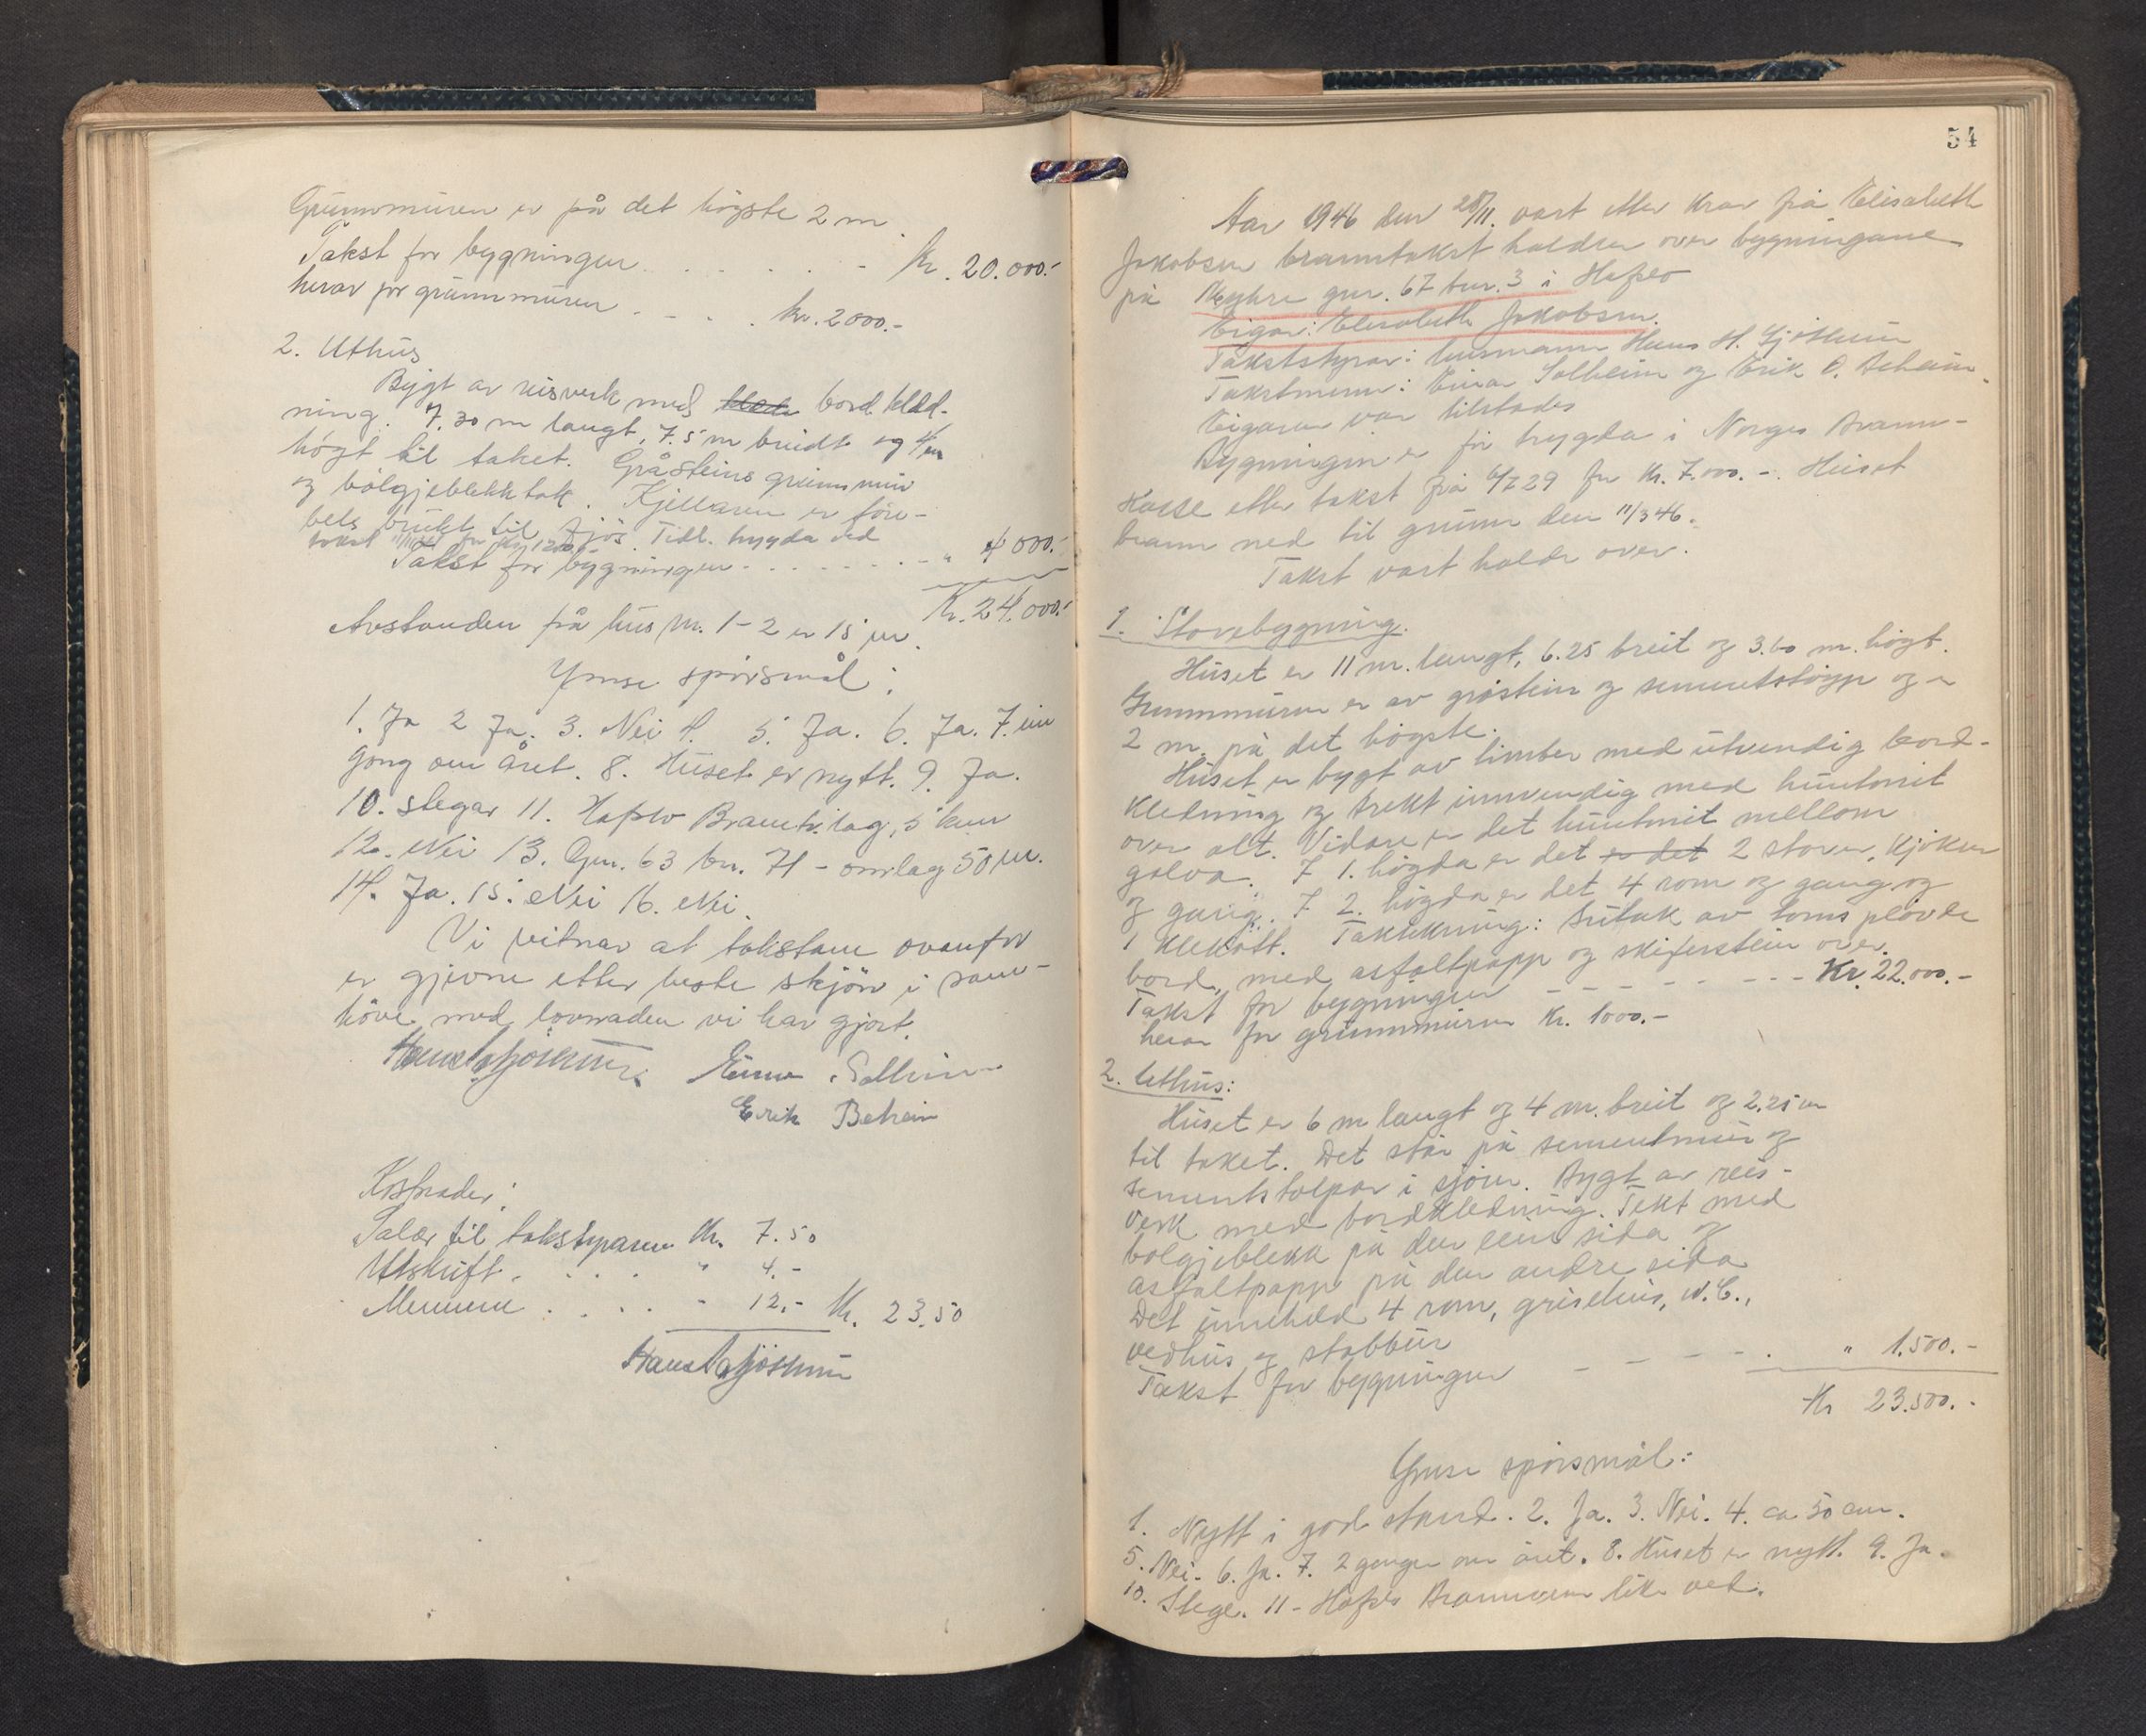 Grunnmuren er på det högste 2 m.
Takst for bygningen . . . . . - Kr. 20.000.-
herav for grunnmuren . - . . kr. 2000.-
2. Uthus
Bygt av reisverk med bord kled-
ning. 7.30 m langt, 7.5 m breidt og 4 m
högt til taket. Gråsteins grunnmur
og bölgjeblekktak. Kjellaren er före-
bels brukt til fjös. Tidl. trygda ved
takst for Kr. 1200
Takst for bygningen . . . . . . . - " 4000.-
Kr. 24.000.-
Avstanden frå hus nr. 1-2 er 15 m.
Ymse spörsmål:
1. Ja 2 Ja. 3. Nei 4. 5. Ja. 6. Ja. 7. ein
gong om året. 8. Huset er nytt. 9. Ja.
10. stegar 11. Hafslo Brannk. lag, 5 km
12. Nei 13. Gnr. 63 bn. 71 - omlag 50 m.
14. Ja. 15. Nei 16. Nei.
Vi vitnar at takstane ovanfor
er gjevne etter beste skjön i sam-
höve med lovnaden vi har gjort.
Einar Solheim
Erik Beheim
Kostnader:
Salær til takstyraren Kr. 7.50
Utskrift . . . . " 4.-
Mennene . . . . - 12.- Kr. 23.50
54
Aar 1946 den 28/11. vart etter krav frå Elisabeth
Jakobsen branntakst halden over bygningane
på gnr. 67 bnr. 3 i Hafslo
Eigar: Elisabeth Jakobsen.
Takststyrar: lensmann Hans H. Gjöthun
Takstmenn: Einar Solheim og Erik O. Beheim.
Eigaren var tilstades
Bygningen er för trygda i Norges Brann-
Kasse etter takst frå 29 for kr. 7.000.-. Huset
brann ned til grunn den 11/3 46.
Takst vart halde over.
1. Stovebygning.
Huset er 11 m. langt, 6.25 breit og 3.60 m. högt.
Grunnmuren er av gråstein og sementstöyp og er
2 m. på det högste.
Huset er bygt av timber med utvendig bord-
kledning og trekt innvendig med huntonit
over alt. Vidare er det huntonit mellom
golva. I 1. högda er det er det 2 stover, kjöken
og gang. I 2. högda er det 4 rom og gang og
1 klekott. Taktekning: Sutak av toms plövde
bord, med asfaltpapp og skiferstein over.
Takst for bygningen - - - - - - - - Kr. 22.000.-
herav for grunnmuren Kr. 1000.-
2. Uthus:
Huset er 6 m langt og 4 m. breit og 2.25 m
til taket. Det står på sementmur og
sementstolpar i sjöen. Bygt av reis-
verk med bordkledning. Tekt med
bölgjeblekk på den eine sida og
asfaltpapp på den andre sida
Det inneheld 4 rom, grisehus, W.C.,
vedhus og stabbur
Takst for bygningen - - - - . " 1.500.-
Kr 23.500.-
Ymse spörsmål:
1. Nytt i god stand. 2. Ja. 3. Nei. 4. ca 50 cm.
5. Nei. 6. Ja. 7. 2 gonger om året. 8. Huset er nytt. 9. Ja.
10. Stege. 11 - Hafslo Brannvern like ved.